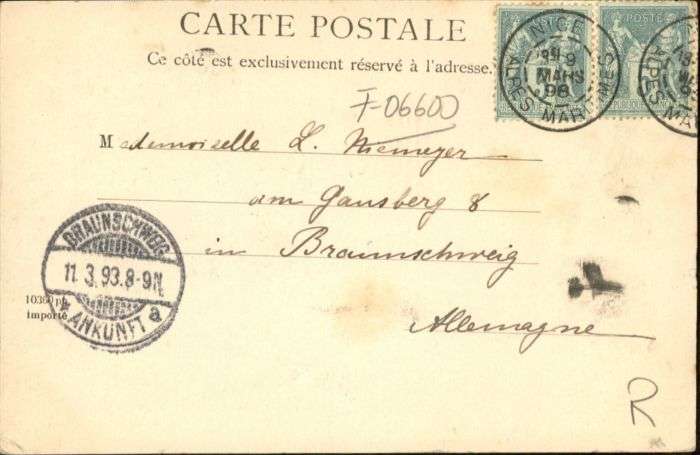 CARTE POSTALE
Ce côté est exclusivement réservé à l'adresse.
NICE
9
MARS
98
ALPES MARIMES
POSTE
F-06600
Mademoiselle L. Niemeyer
am Gausberg 8
in Braunschweig
Allemagne
BRAUNSCHWEIG
11.3.93.8-9N.
* ANKUNFT a
10360 ph.
importé
R